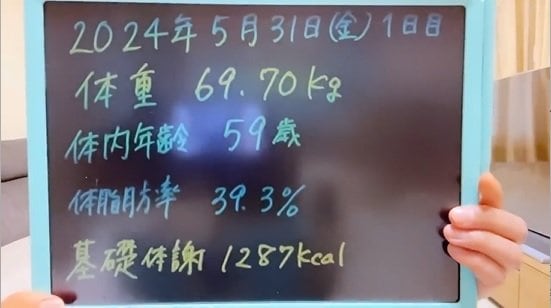 2024年5月31日(金)1日目
体重 69.70kg
体内年齢 59歳
体脂肪率 39.3%
基礎体謝 1287kcal